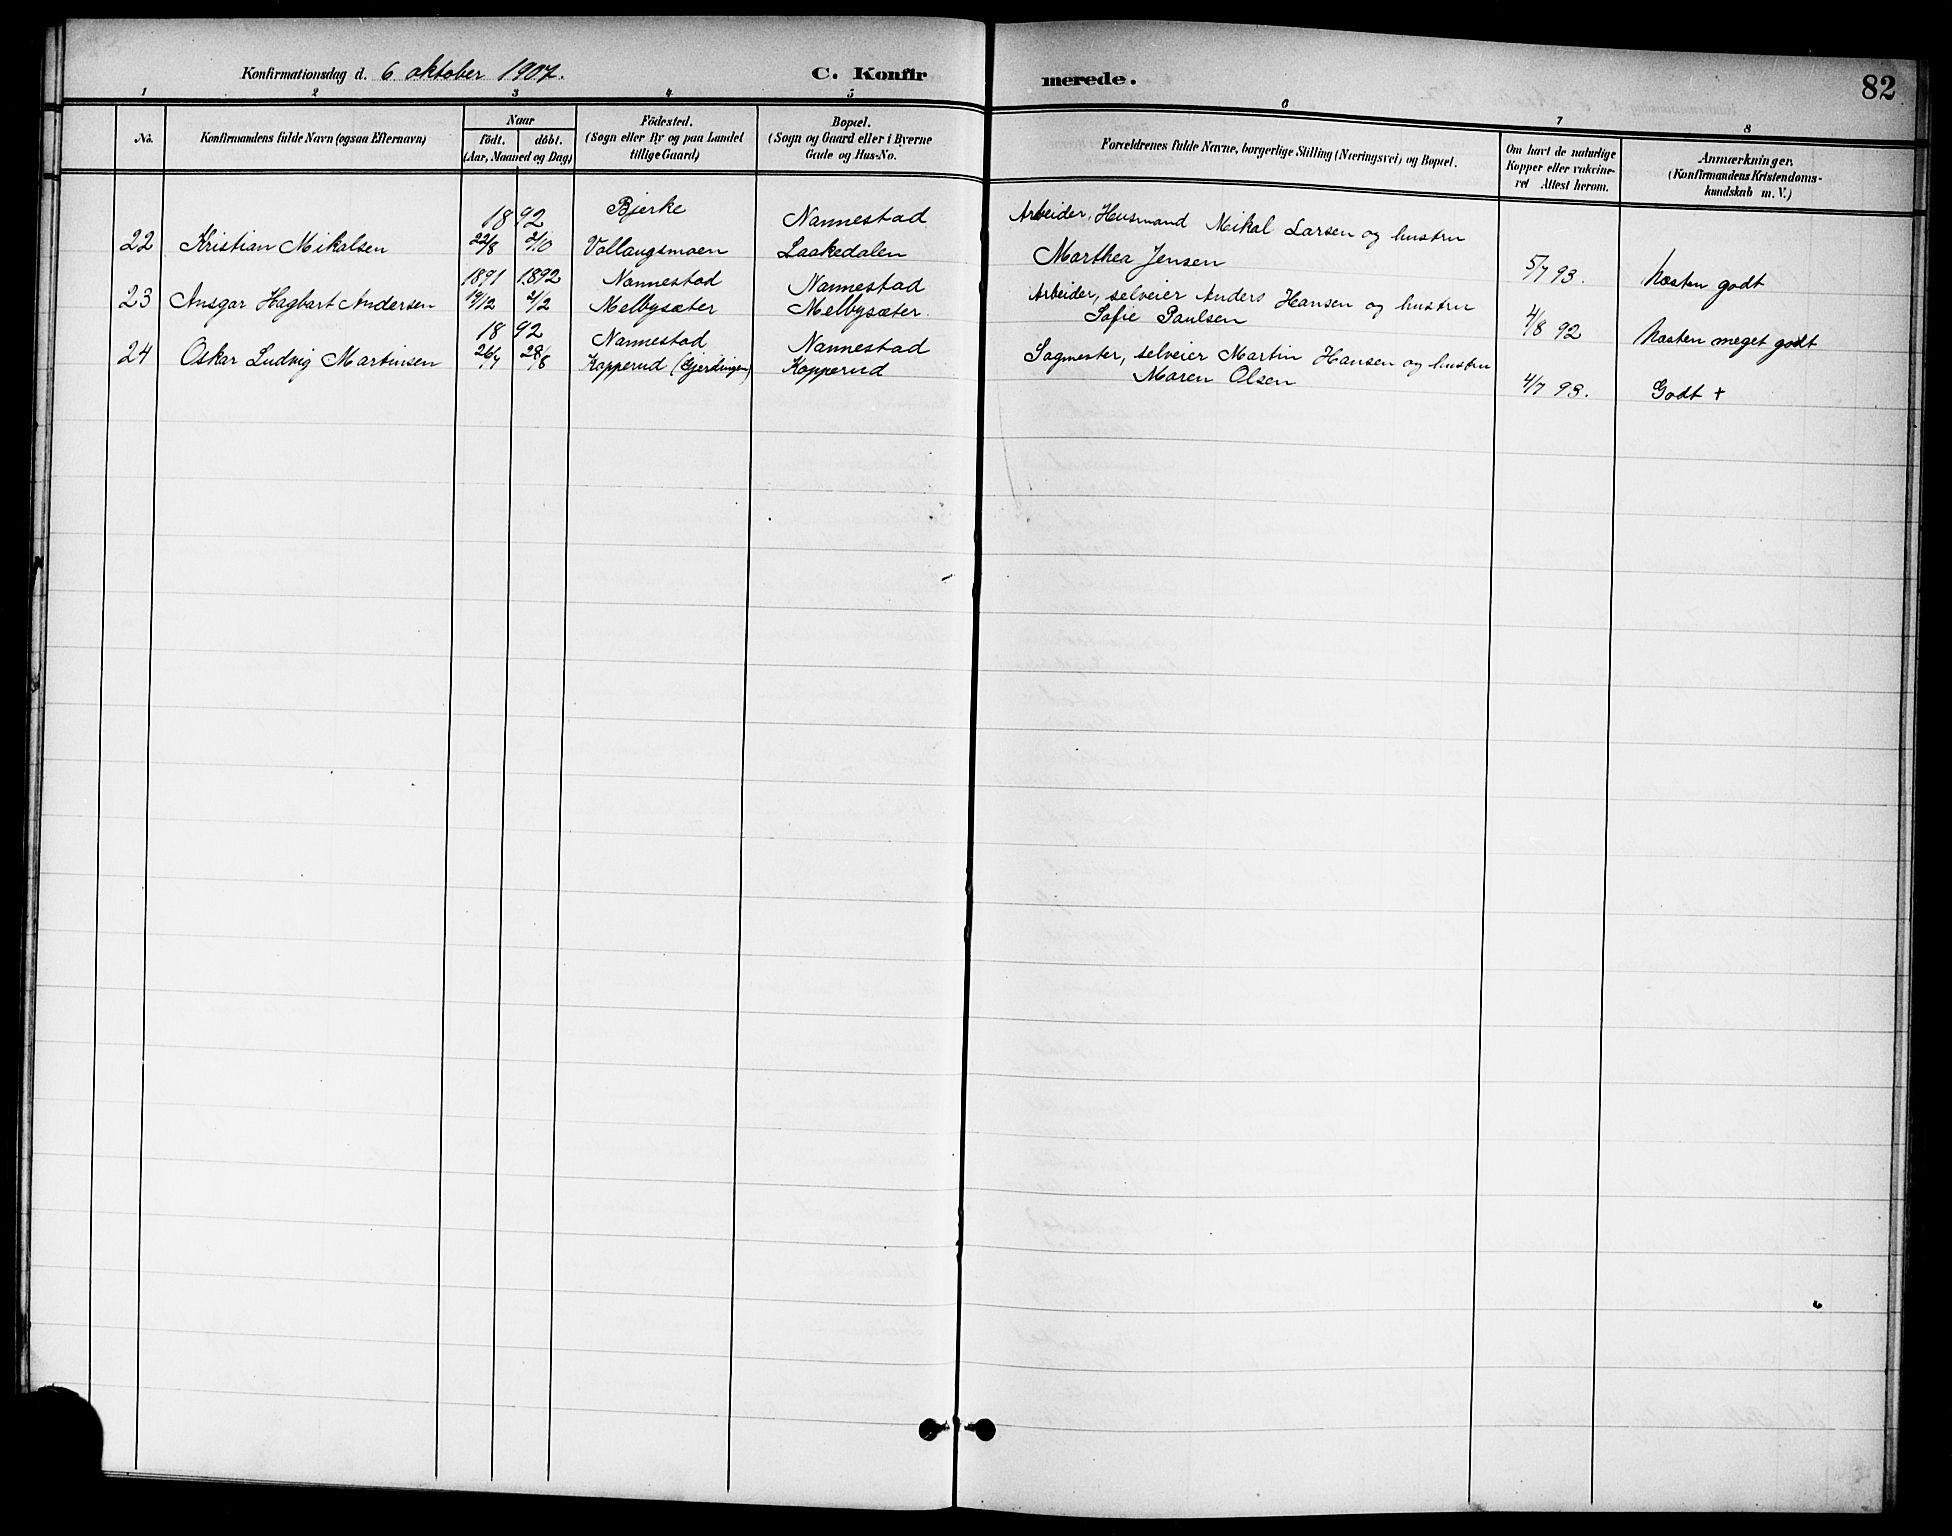 Konfirmationsdag d. 6. oktober 1907. C. Konfirmerede. 82
1 2 3 4 5 6 7 8
No. Konfirmandens fulde Navn (ogsaa Efternavn) Naar födt. döbt. (Aar, Maaned og Dag) Födested. (Sogn eller By og paa Landet tillige Gaard) Bopæl. (Sogn og Gaard eller i Byerne Gade og Hus-No. Forældrenes fulde Navne, borgerlige Stilling (Næringsvei) og Bopæl. Om havt de naturlige Kopper eller vakcineret Attest herom. Anmærkninger. (Konfirmandens Kristendomskundskab m. V.)
1892 Bjerke Nannestad Arbeider, Husmand Mikal Larsen og hustru
22 Kristian Mikalsen 22/8 2/10 Vollaugsmoen Laakedalen Marthea Jensen 5/7 93. Næsten godt
1891 1892 Nannestad Nannestad Arbeider, selveier Anders Hansen og hustru
23 Ansgar Hagbart Andersen 19/12 2/2 Melbysæter Melbysæter. Sofie Paulsen 4/8 92 Næsten meget godt
1892 Nannestad Nannestad Sagmester, selveier Martin Hansen og hustru
24 Oskar Ludvig Martinsen 28/8 Kopperud (Gjerdingen) Kopperud Maren Olsen 4/7 93. Godt +